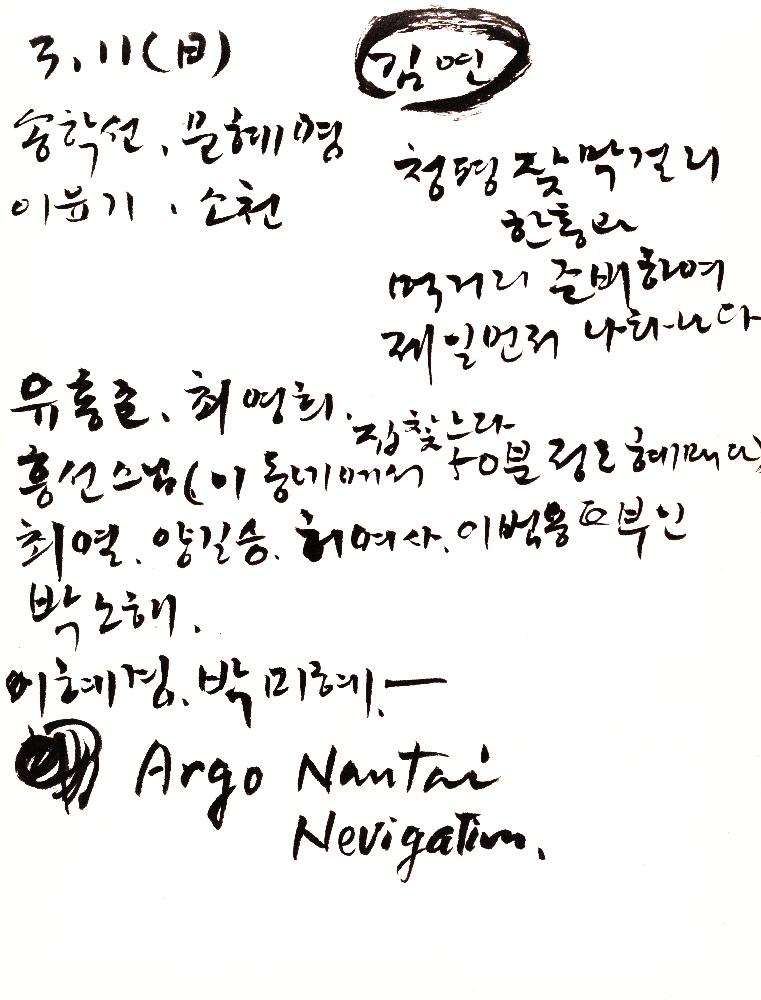 3.11(日)
김연
송학선, 문혜영
이윤기, 소천
청평 잣막걸리
한통과
먹거리 준비하여
제일먼저 나타나다
유홍준, 최영희.
집찾느라
흥선스님(이 동네에서 50분 정도 헤매다)
최열, 양길승, 허여사, 이범용 부인
박노해.
이혜경, 박미례.—
Argo Nautai
Nevigation.